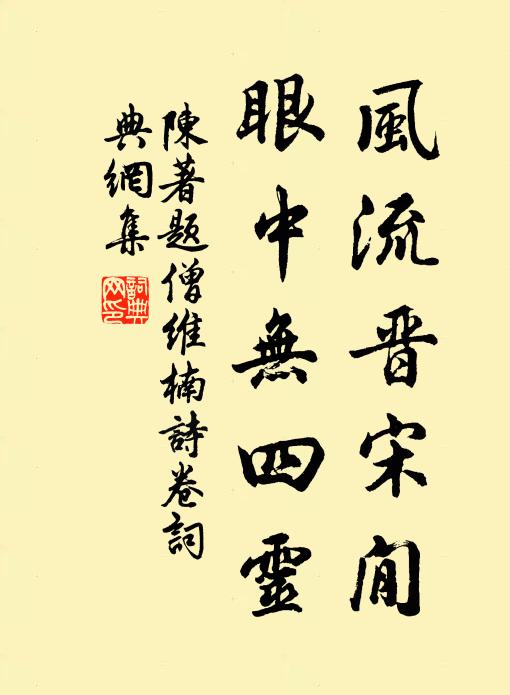 風流晋宋間
眼中無四靈
陳著題僧維楠詩卷詞
典網集
詞典网印